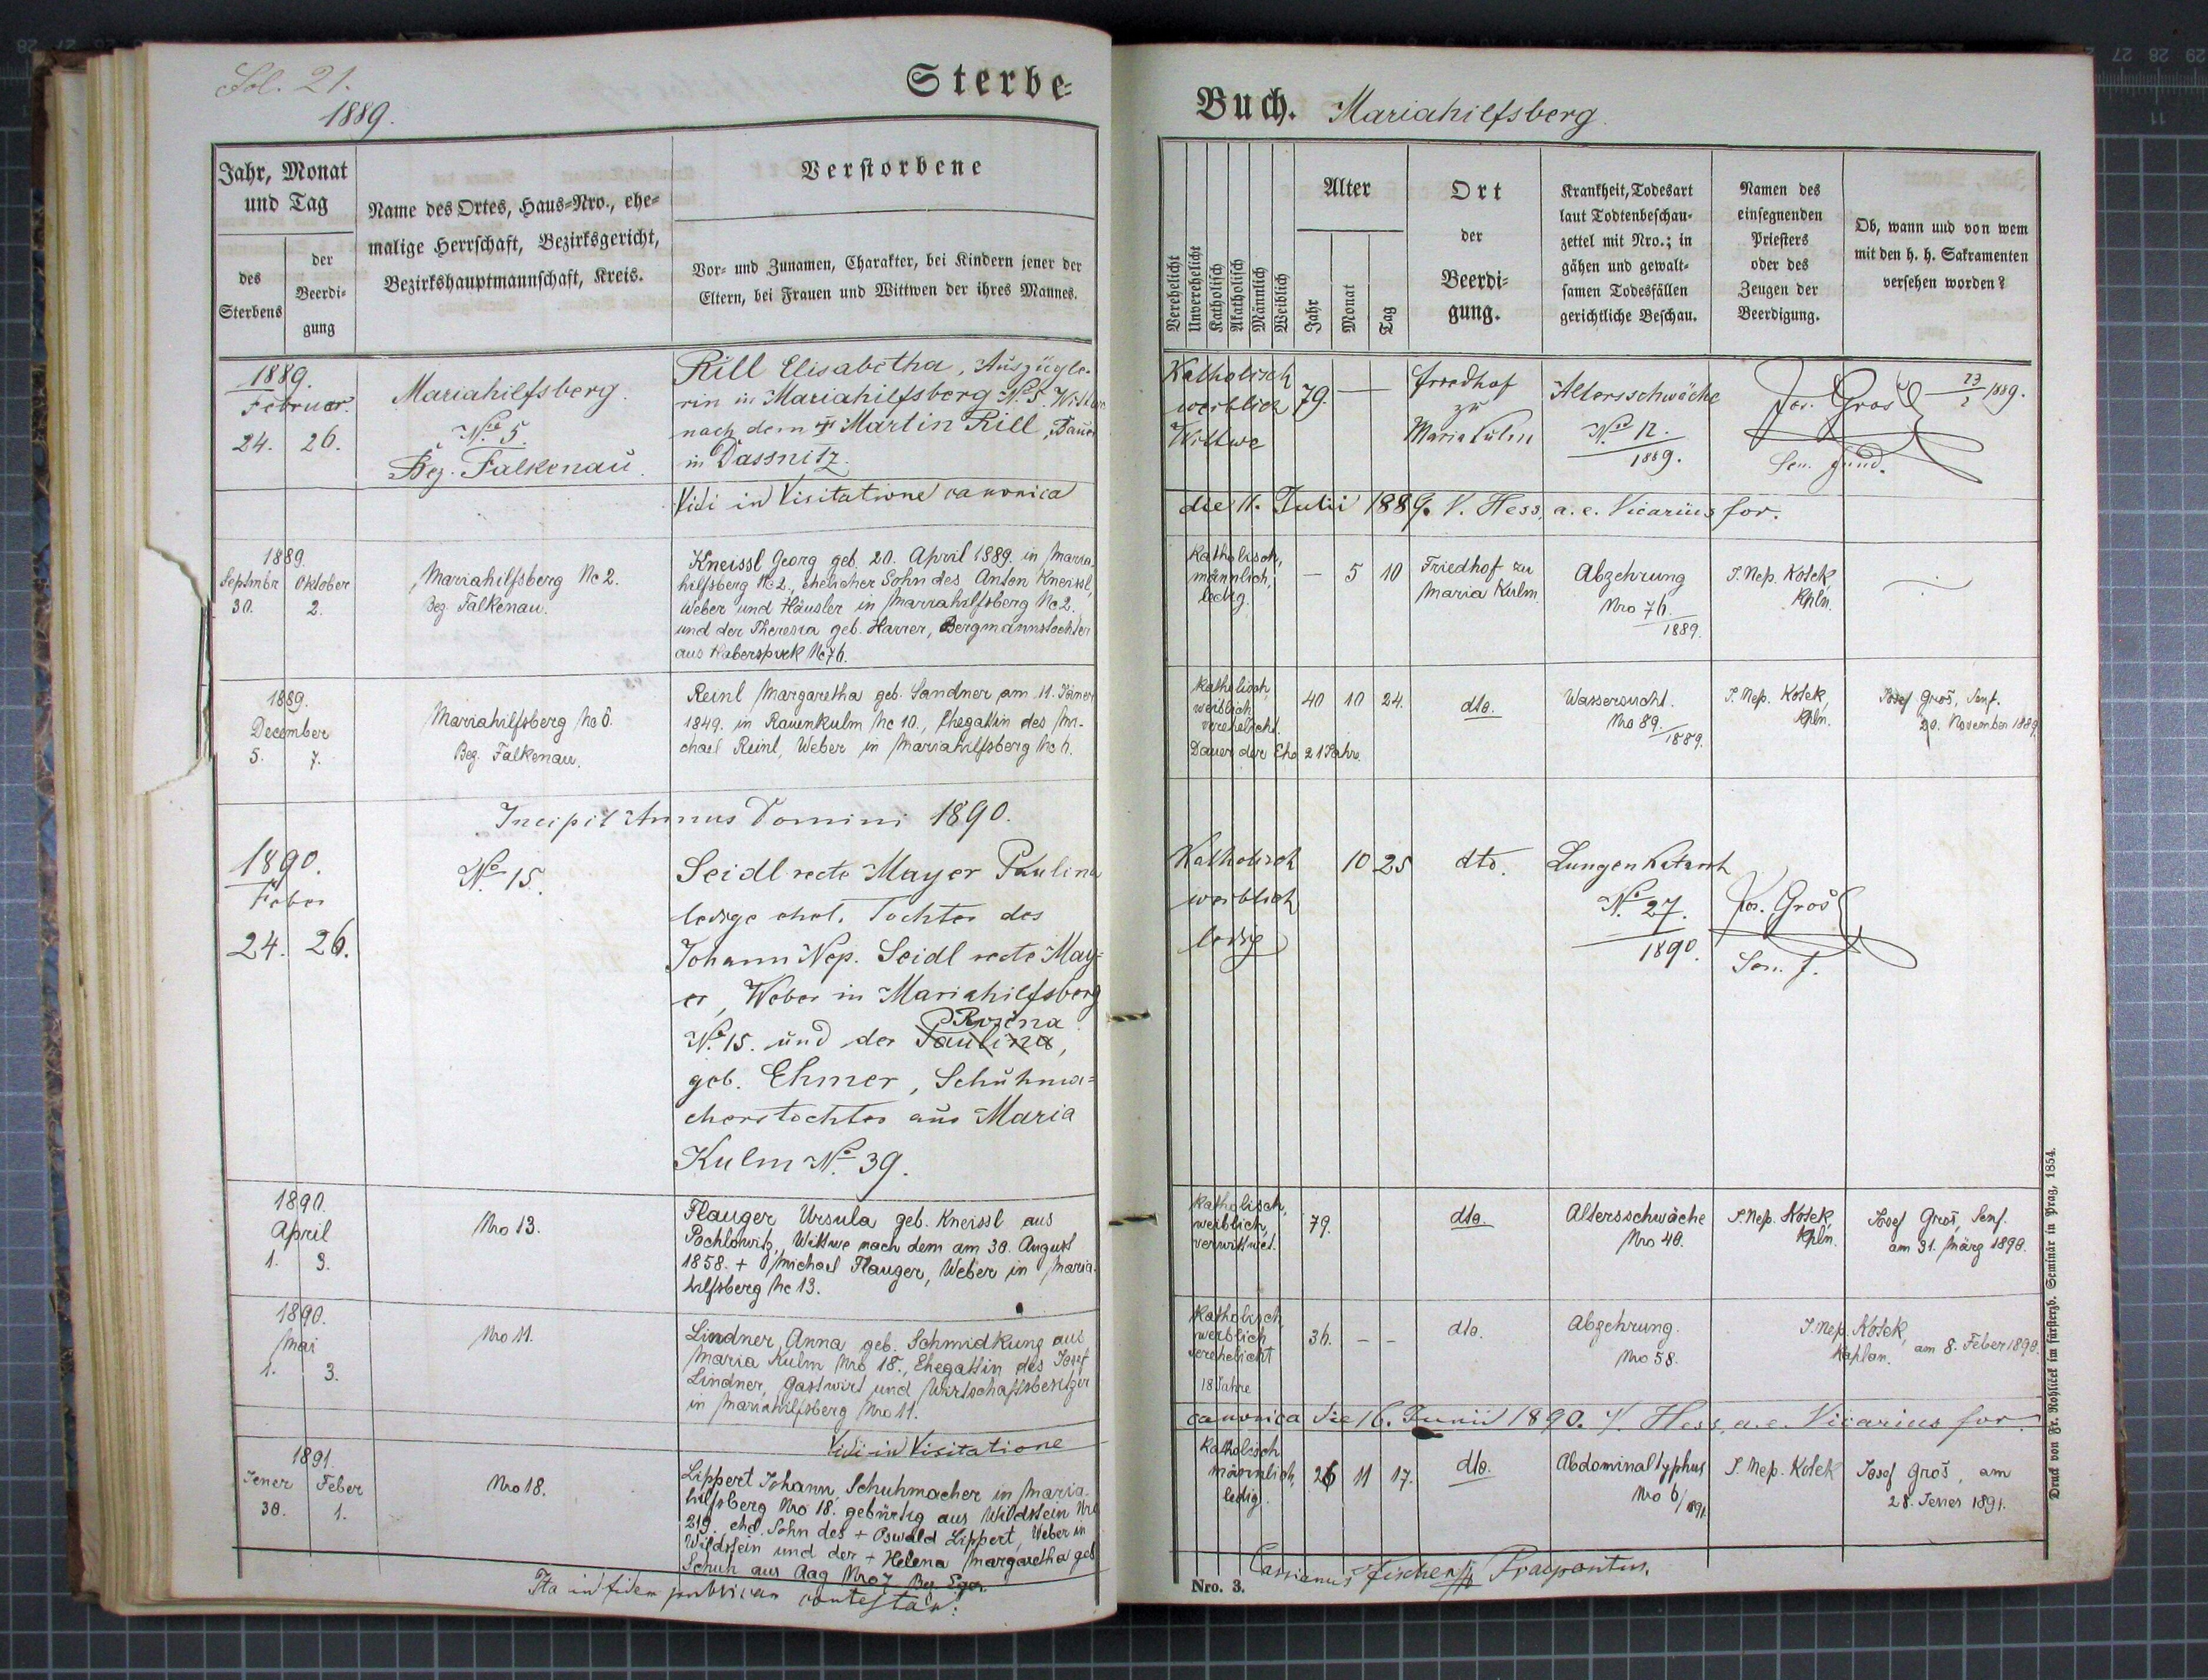 Fol. 21.
1889.
Sterbe-
Jahr, Monat
und Tag
des
Sterbens
der
Beerdi-
gung
Name des Ortes, Haus-Nro., ehe-
malige Herrschaft, Bezirksgericht,
Bezirkshauptmannschaft, Kreis.
Verstorbene
Vor- und Zunamen, Charakter, bei Kindern jener der
Eltern, bei Frauen und Wittwen der ihres Mannes.
1889.
Februar.
24. 26.
Mariahilfsberg.
No. 5.
Bez. Falkenau.
Rill Elisabetha, Auszügle-
rin in Mariahilfsberg No. 5. Wittwe
nach dem † Martin Rill, Bauer
in Dassnitz.
Vidi in Visitatione canonica
1889.
Septmbr Oktober
30. 2.
Mariahilfsberg No 2.
Bez. Falkenau.
Kneissl Georg geb. 20. April 1889. in Maria-
hilfsberg No 2., ehelicher Sohn des Anton Kneissl,
Weber und Häusler in Mariahilfsberg No 2.
und der Theresia geb. Harrer, Bergmannstochter
aus Haberspirk No 76.
1889.
December
5. 7.
Mariahilfsberg No 6.
Bez. Falkenau.
Reinl Margaretha geb. Sandner am 11. Jäner
1849. in Rauenkulm No 10., Ehegattin des Mi-
chael Reinl, Weber in Mariahilfsberg No 6.
Incipit Annus Domini 1890.
1890.
Feber
24. 26.
No. 15.
Seidl recte Mayer Paulina
ledige ehel. Tochter des
Johann Nep. Seidl recte May-
er, Weber in Mariahilfsberg
Rosina
No. 15. und der Paulina,
geb. Ehmer, Schuhma-
cherstochter aus Maria
Kulm No. 39.
1890.
April
1. 3.
Nro 13.
Flauger Ursula geb. Kneissl aus
Pochlowitz, Wittwe nach dem am 30. August
1858. + Michael Flauger, Weber in Maria-
hilfsberg No 13.
1890.
Mai
1. 3.
Nro 11.
Lindner Anna geb. Schmidkunz aus
Maria Kulm Nro 18., Ehegattin des Josef
Lindner, Gastwirt und Wirtschaftsbesitzer
in Mariahilfsberg Nro 11.
Vidi in Visitatione
1891.
Jener Feber
30. 1.
Nro 18.
Lippert Johann, Schuhmacher in Maria-
hilfsberg Nro 18. gebürtig aus Wildstein Nro
219. ehel. Sohn des + Oswald Lippert, Weber in
Wildstein und der + Helena Margaretha geb.
Schuh aus Aag Nro 7 Bez. Eger.
Ita in fidem publicam contestar:
Buch. Mariahilfsberg.
Verehelicht
Unverehelicht
Katholisch
Akatholisch
Männlich
Weiblich
Alter
Jahr
Monat
Tag
Ort
der
Beerdi-
gung.
Krankheit, Todesart
laut Todtenbeschau-
zettel mit Nro.; in
gähen und gewalt-
samen Todesfällen
gerichtliche Beschau.
Namen des
einsegnenden
Priesters
oder des
Zeugen der
Beerdigung.
Ob, wann und von wem
mit den h. h. Sakramenten
versehen worden?
Katholisch
weiblich
Wittwe
79. —
Friedhof
zu
Maria Kulm
Altersschwäche
No. 12.
1889.
Jos. Groš
23/2 1889.
die 11. Julii 1889. V. Hess, a. e. Vicarius for.
Katholisch,
männlich,
ledig.
— 5 10
Friedhof zu
Maria Kulm
Abzehrung
Nro 76.
1889.
J. Nep. Kotek,
Kpln.
Katholisch,
weiblich,
verehelicht.
Dauer der Ehe 21 Jahre.
40 10 24.
dto.
Wassersucht.
Nro 89.
1889.
J. Nep. Kotek,
Kpln.
Josef Groš, Senf.
20. November 1889.
Katholisch
weiblich
ledig
10 25
dto.
Lungenkatarrh
No. 27.
1890.
Jos. Groš
Sen. f.
Katholisch,
weiblich,
verwittwet.
79.
dto.
Altersschwäche
Nro 40.
J. Nep. Kotek,
Kpln.
Josef Groš, Senf.
am 31. März 1890.
Katholisch
weiblich
verehelicht
18 Jahre
36. - -
dto.
Abzehrung.
Nro 58.
J. Nep. Kotek,
Kaplan.
am 8. Feber 1890.
canonica die 16. Junii 1890. V. Hess, a. e. Vicarius for.
Katholisch
männlich,
ledig.
26 11 17.
dto.
Abdominaltyphus
Nro 6/1891.
J. Nep. Kotek
Josef Groš, am
28. Jener 1891.
Nro. 3.
Cassianus Fischer
Druck von Fr. Rohlicek im fürsterzb. Seminär in Prag, 1854.